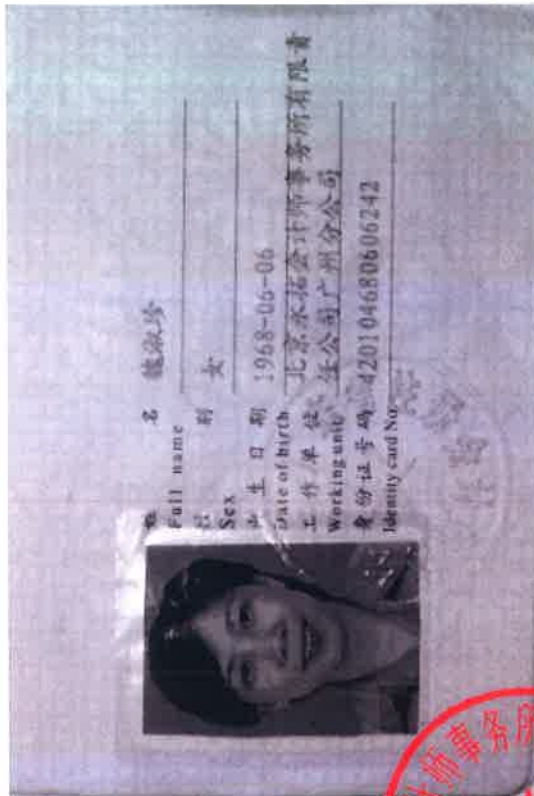 姓 名 魏淑珍
Full name
性 别 女
Sex
出 生 日 期 1968-06-06
Date of birth
工 作 单 位 北京永拓会计师事务所有限责
Working unit 任公司广州分公司
身份证号码 420104680606242
Identity card No.
师事务所